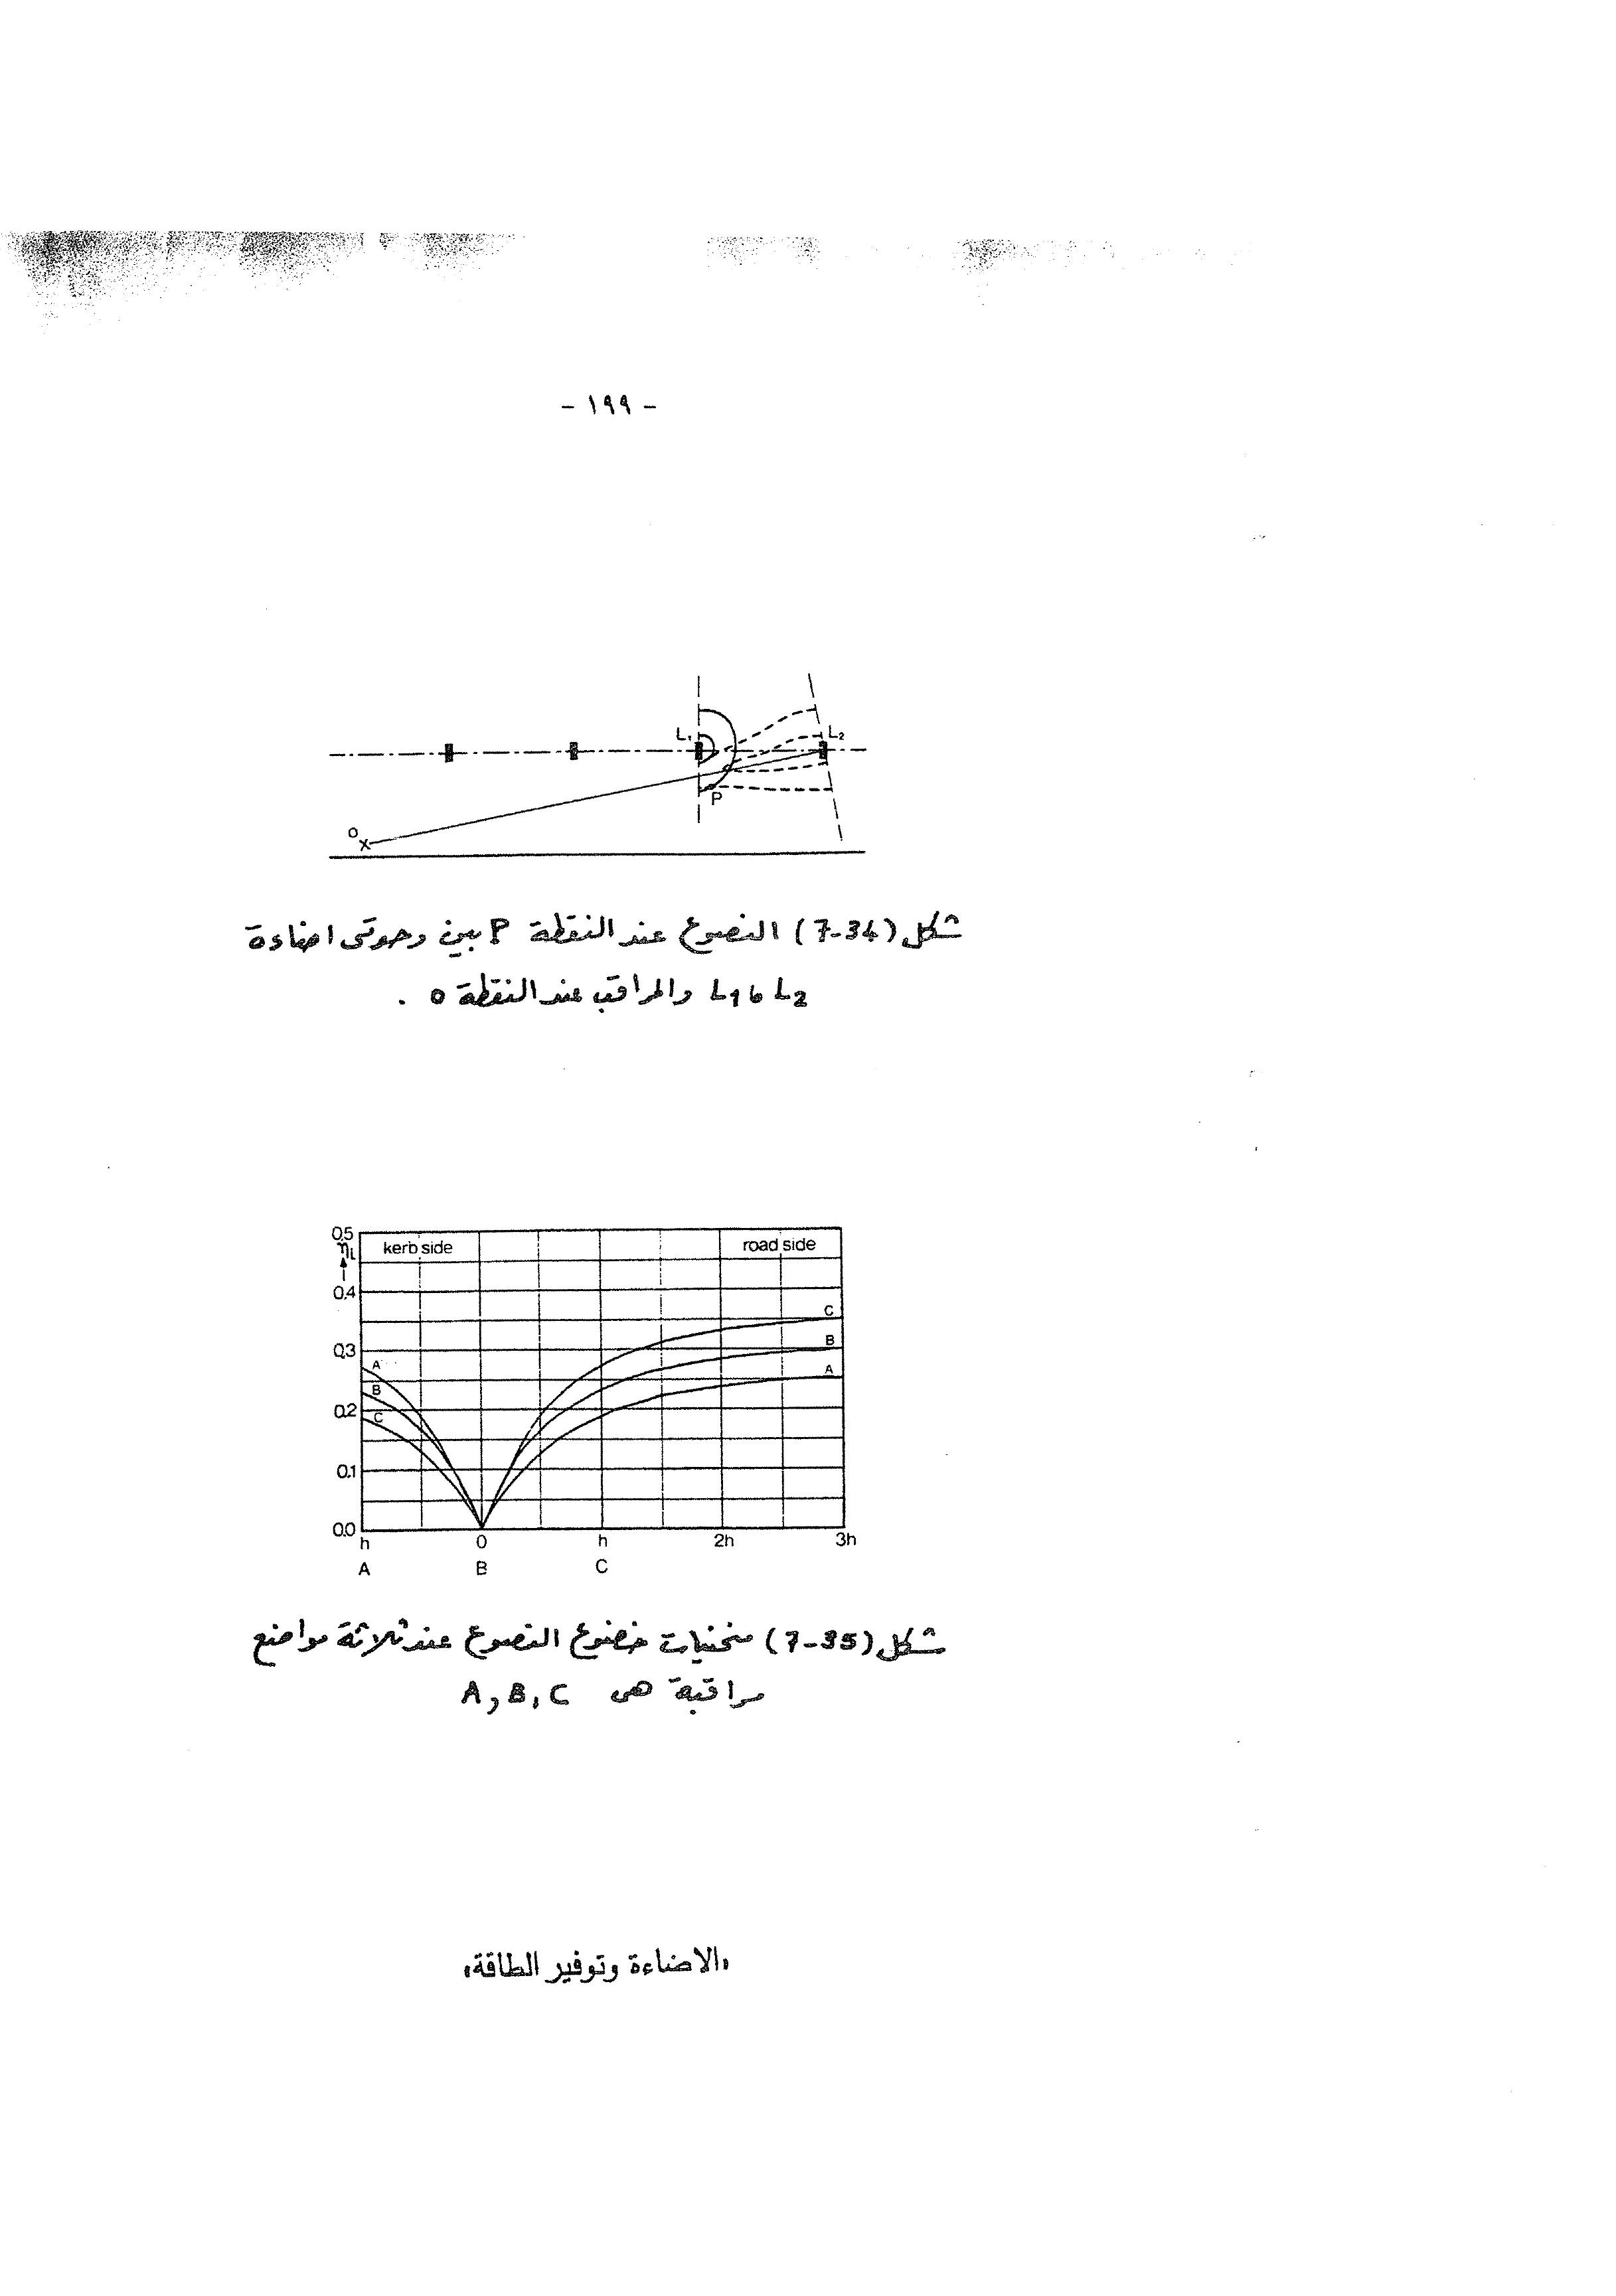 - ١٩٩ -
L₁
L₂
P
O
x
شكل (7-34) النصوع عند النقطة P بين وحدتى اضاءة
L1 ، L2 والمراقب عند النقطة O .
0.5
ηL
kerb side
road side
0.4
0.3
0.2
0.1
0.0
A
B
C
C
B
A
h 0 h 2h 3h
A B C
شكل (7-35) منحنيات خضوع النصوع عند ثلاثة مواضع
مراقبة هى A, B, C
«الاضاءة وتوفير الطاقة»